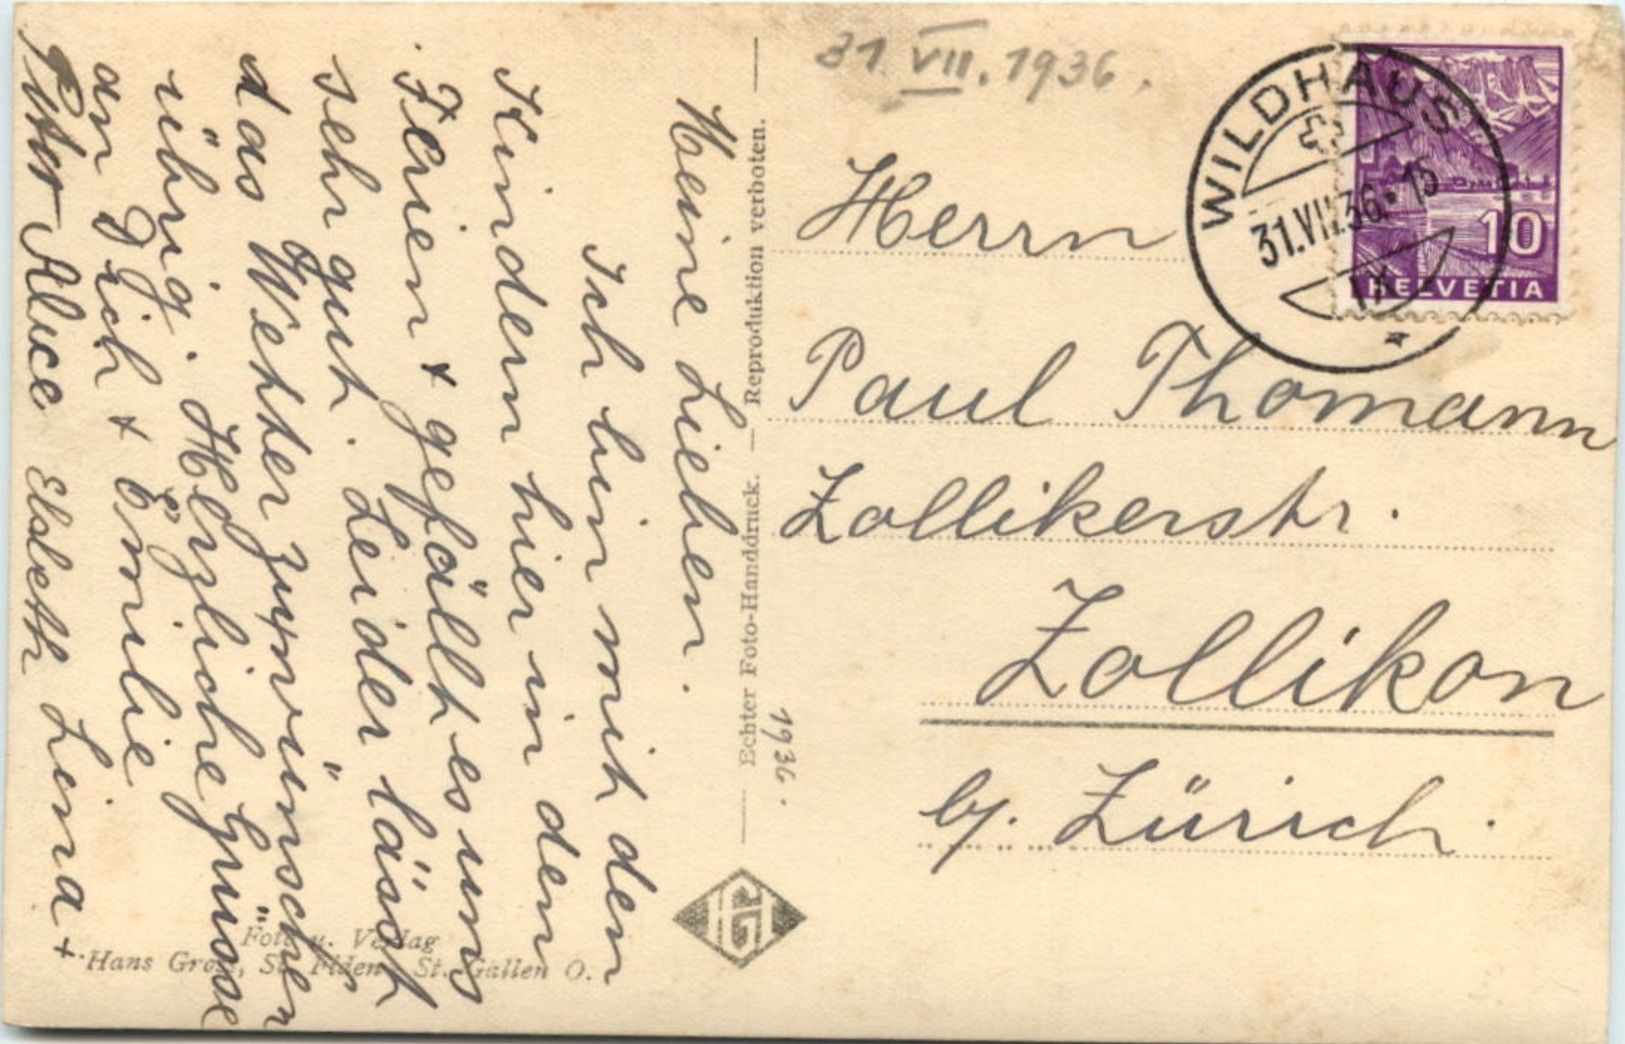 Meine Lieben.
Ich bin mit den
Kindern hier in den
Ferien + gefällt es uns
sehr gut. Leider lässt
das Wetter zu wünschen
übrig. Herzliche Grüsse
an Dich + Emilie
Alice Elsbeth Lina +
Echter Foto-Handdruck. — Reproduktion verboten.
1936.
Foto u. Verlag
Hans Gross, St. Fiden - St. Gallen O.
31 VII. 1936.
WILDHAUS
31.VII.36.*15
IX
10
HELVETIA
Herrn
Paul Thomann
Zollikerstr.
Zollikon
b/. Zürich.